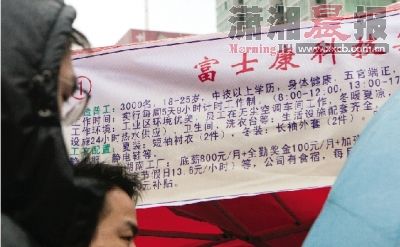 潇湘晨报
Morning
www.xxcb.com.cn
富士康科技
①
普工：3000名，18-25岁，中技以上学历，身体健康，五官端正，
工作时间：实行每周5天8小时计时工作制（8:00-12:00，13:00-17
工作环境：工业区环境优美，员工在无尘空调车间工作，冬暖夏凉，
设施24小时热水供应），卫生间、洗衣台等；生活设施配套齐全
工衣配置：夏装：短袖衬衣（2件），冬装：长袖外套（2件），
静电鞋等。
底薪800元/月+全勤奖金100元/月+加
节假日13.5元/小时）等，公司有食宿，每日
元补贴。